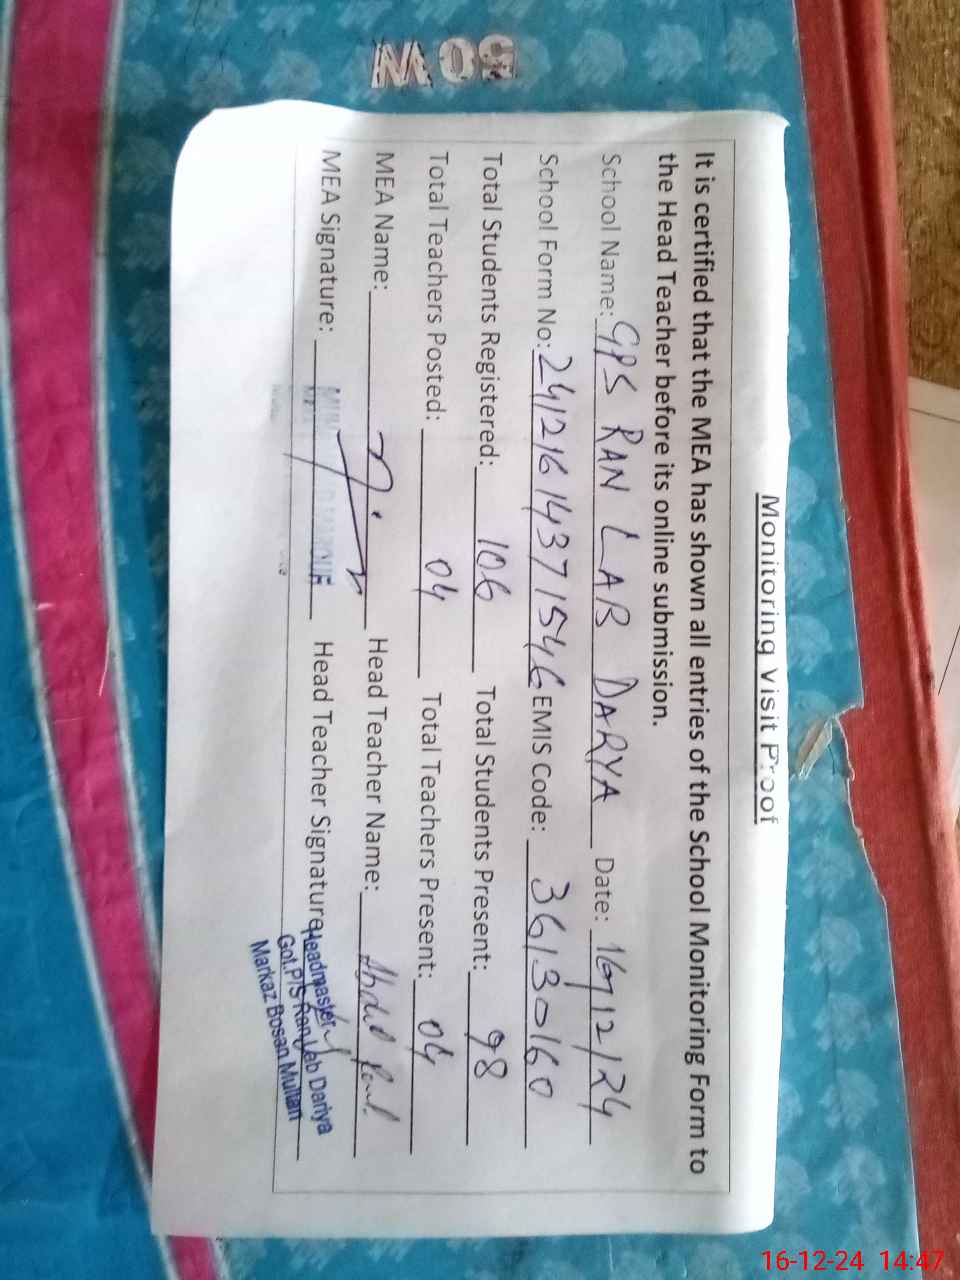 Monitoring Visit Proof
It is certified that the MEA has shown all entries of the School Monitoring Form to
the Head Teacher before its online submission.
School Name: GPS RAN LAB DARYA Date: 16/12/24
School Form No: 24121614371546 EMIS Code: 36130160
Total Students Registered: 106 Total Students Present: 98
Total Teachers Posted: 04 Total Teachers Present: 04
MEA Name: Head Teacher Name: Abdul
MEA Signature: Head Teacher Signature
Headmaster
Got.P/S Ran Lab Dariya
Markaz Bosan Multan
16-12-24 14:47